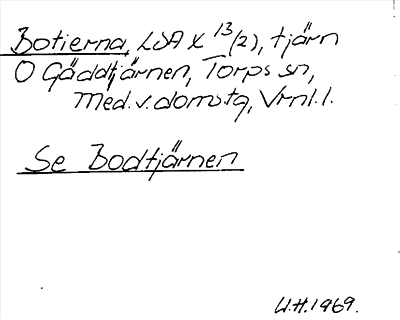 Botierna, LSA X 13/(2), tjärn
O Gäddtjärnen, Torps sn,
Med.v.doms.tg, Vrnl.l.
Se Bodtjärnen
U.H.1969.